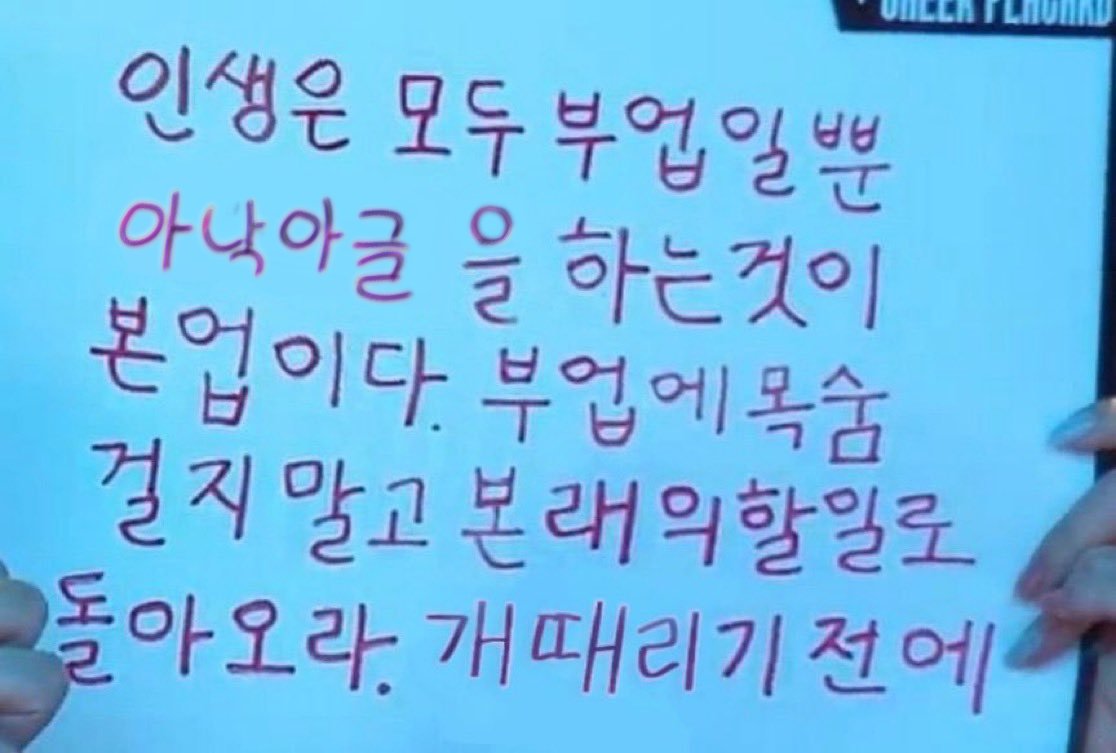 CHEER PLACARD
인생은 모두 부업일뿐
아낙아글 을 하는것이
본업이다. 부업에 목숨
걸지 말고 본래의 할일로
돌아오라. 개때리기전에